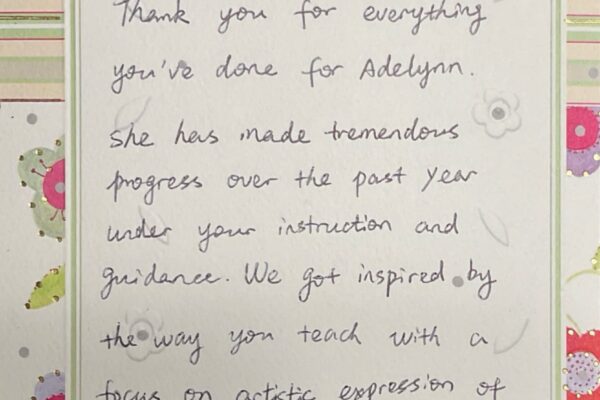 Thank you for everything
you've done for Adelynn.
She has made tremendous
progress over the past year
under your instruction and
guidance. We got inspired by
the way you teach with a
focus on artistic expression of